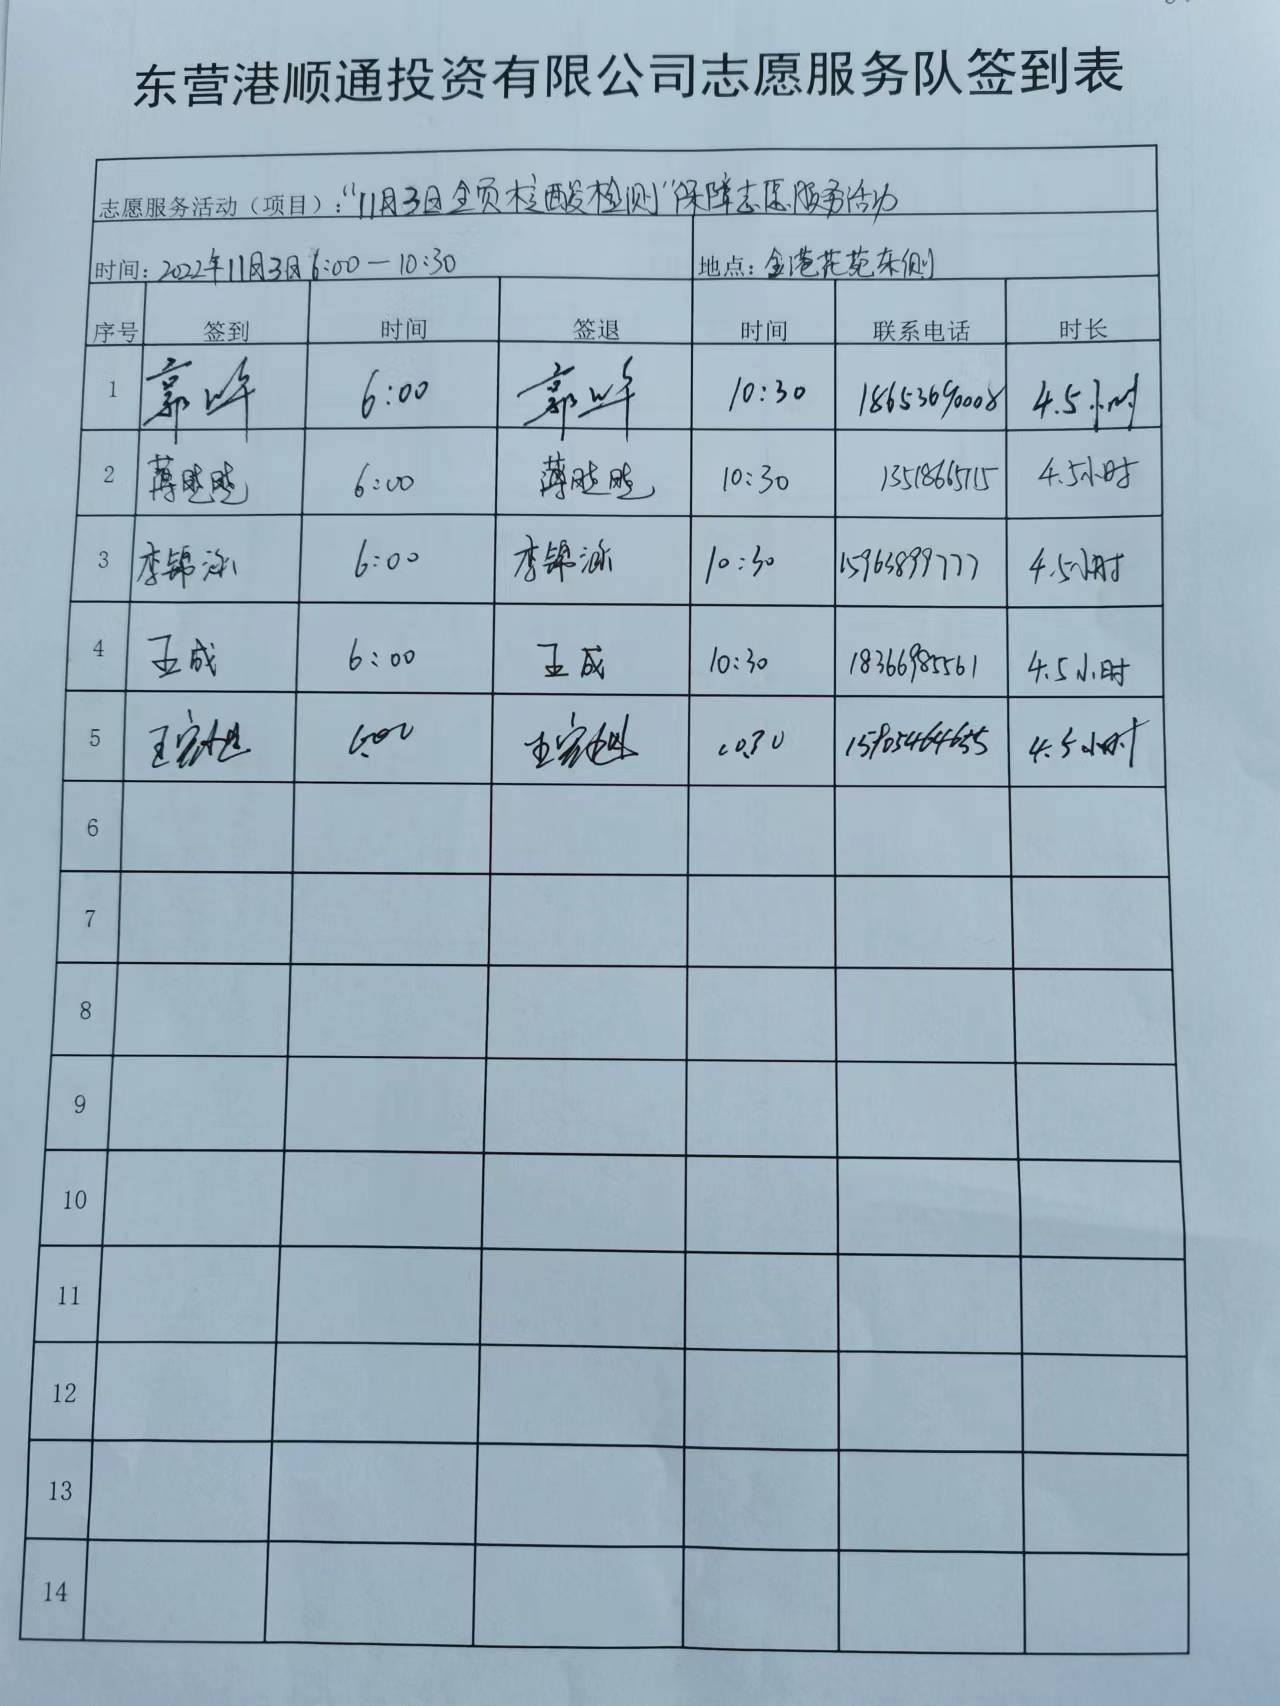 东营港顺通投资有限公司志愿服务队签到表
志愿服务活动（项目）：“11月3日全员核酸检测”保障志愿服务活动
时间：2022年11月3日6:00—10:30 地点：金港花苑东侧
序号 签到 时间 签退 时间 联系电话 时长
1 郭 6:00 郭 10:30 18653690008 4.5小时
2 薄 6:00 薄 10:30 13518665715 4.5小时
3 李锦涵 6:00 李锦涵 10:30 15963899777 4.5小时
4 王成 6:00 王成 10:30 18366985561 4.5小时
5 王 6:00 王 10:30 15905464655 4.5小时
6
7
8
9
10
11
12
13
14